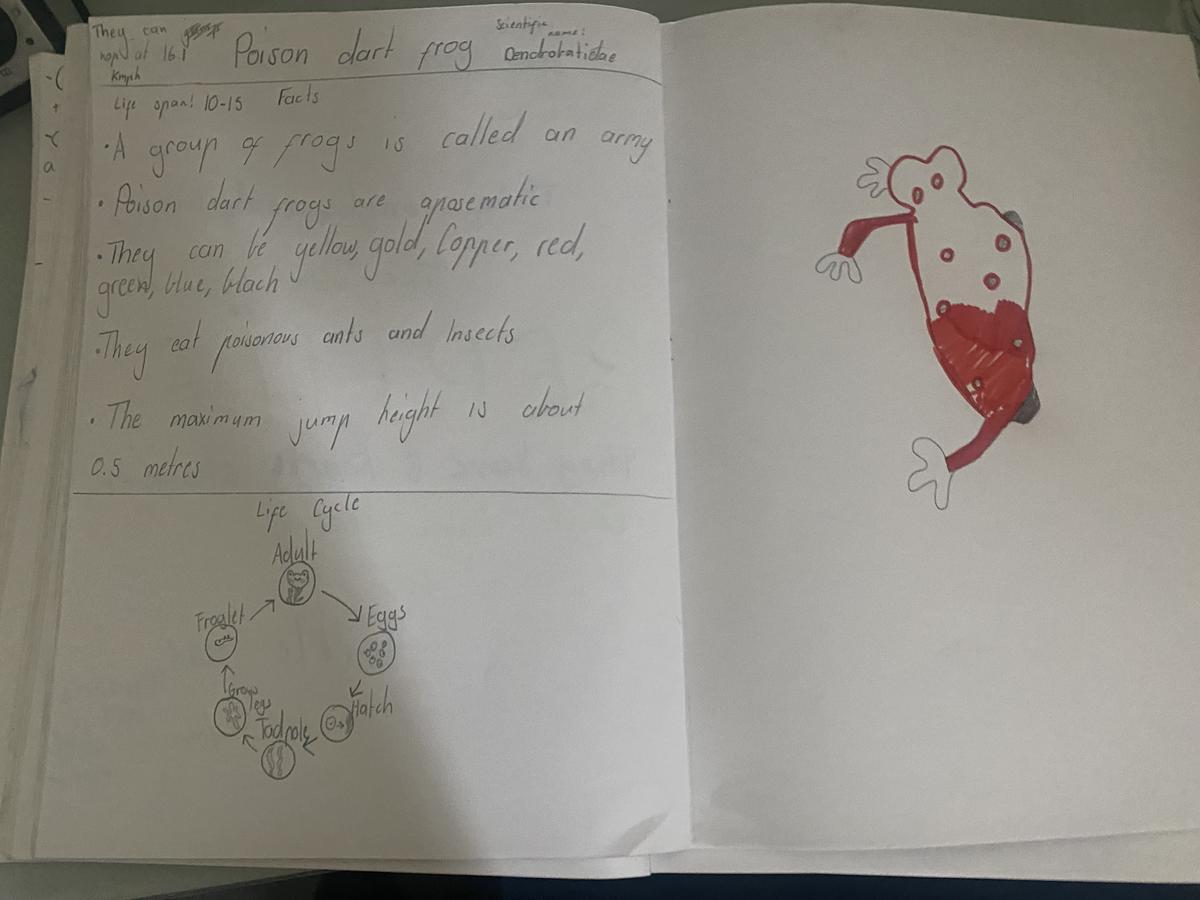 They can
hop at 16.1
Kmph
Poison dart frog
Scientific
name:
Dendrobatidae
Life span! 10-15
Facts
• A group of frogs is called an army
• Poison dart frogs are aposematic
• They can be yellow, gold, Copper, red,
green, blue, black
• They eat poisonous ants and Insects
• The maximum jump height is about
0.5 metres
Life Cycle
Adult
Eggs
Hatch
Tadpole
Grows
legs
Froglet